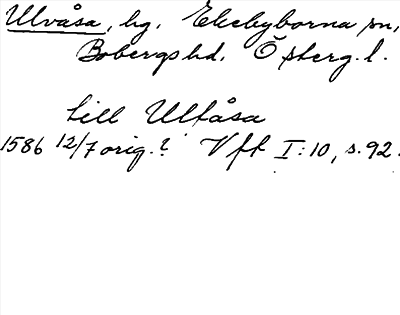 Ulvåsa, hg. Ekebyborna sn,
Bobergs hd. Österg. l.
till Ulfåsa
1586 12/7 orig.? Vfl I:10, s. 92.